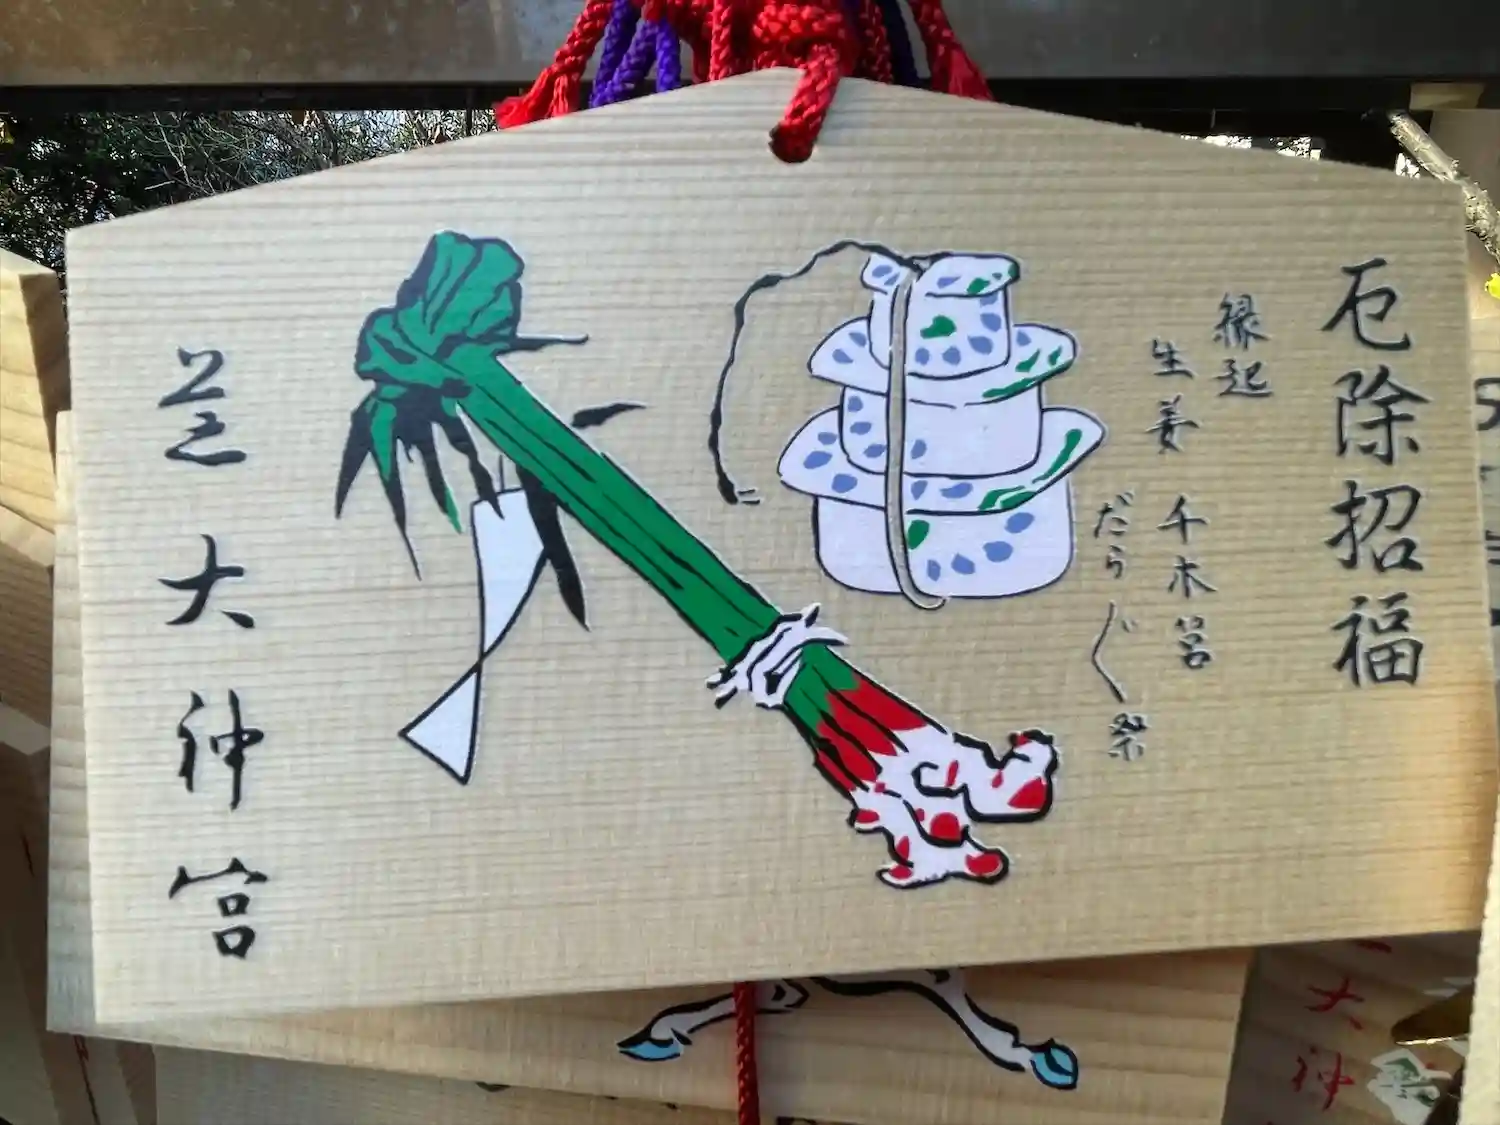 厄除招福
縁起
生姜 千木筥
だら〲祭
芝大神宮
大神